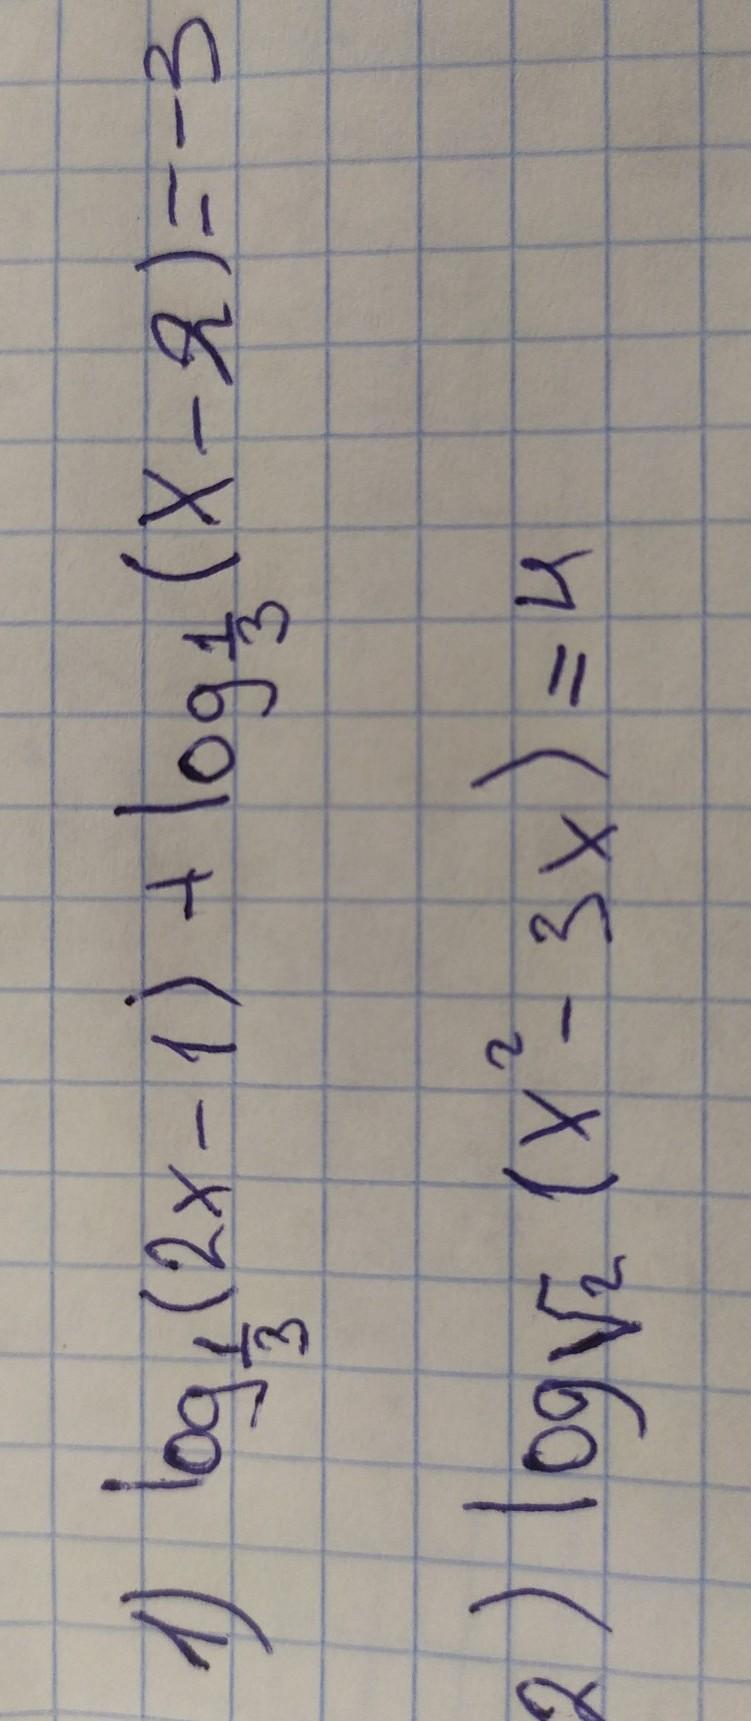 1) log_{1/3}(2x-1)+log_{1/3}(x-2)=-3
2) log_{√2}(x²-3x)=4